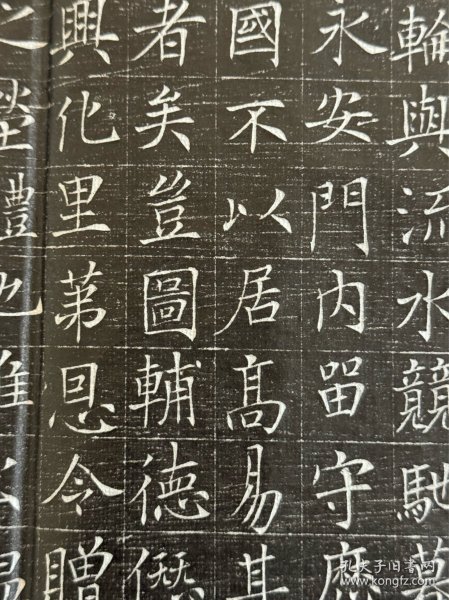 輪與流水競馳暮
永安門內留守
國不以居高易其
者矣豈圖輔德
興化里第恩令贈
之塋禮也惟公
孔夫子旧书网